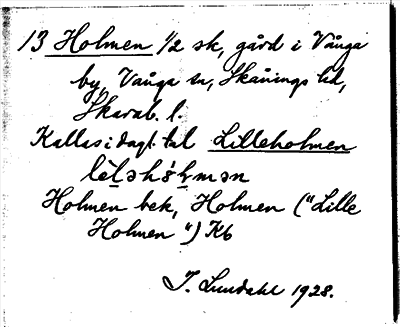 13 Holmen 1/2 sk, gård i Vånga
by, Vånga sn, Skånings hd,
Skarab. l.
Kallas i dagl. tal Lilleholmen
Holmen bek, Holmen ("Lille
Holmen") Kb
I. Lundahl 1928.